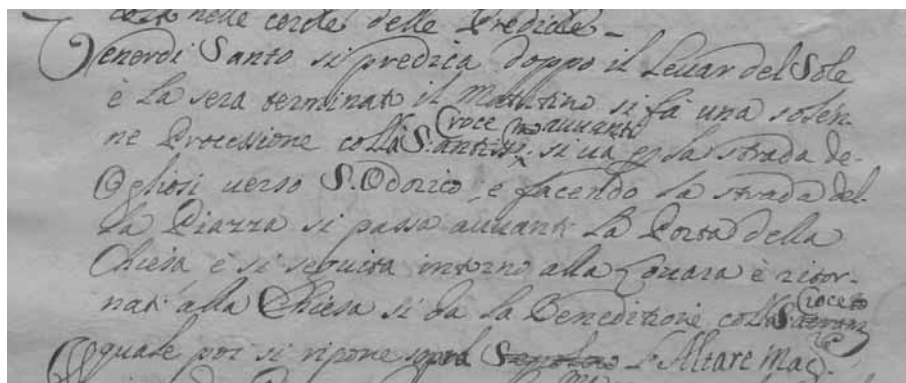 cosa nelle cordel delle Prediche
Venerdi Santo si predica doppo il Levar del Sole
è la sera terminato il Matutino si fà una solen-
Croce auuanti
ne Processione colla S. si ua per la strada de-
Ogliosi uerso S. Odorico, e facendo la strada del-
la Piazza si passa auuanti la Porta della
Chiesa è si seguita intorno alla è ritor-
nati alla Chiesa si da la Beneditione colla Croce
quale poi si ripone sopra l'Altare Mag.